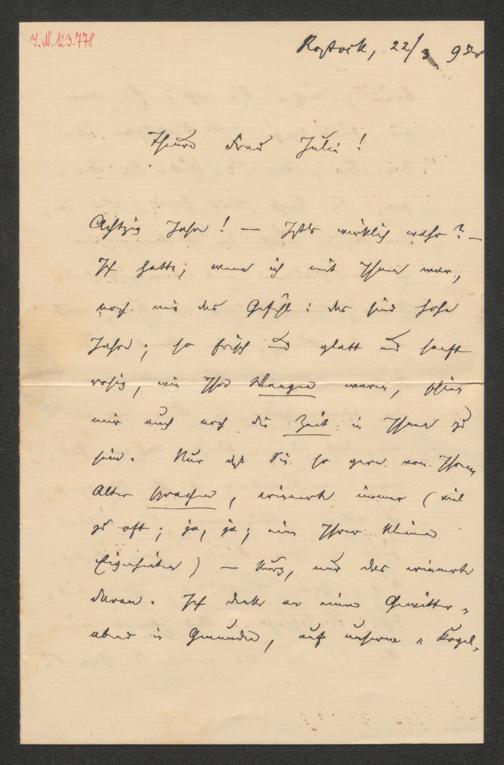 I.N. 123.778
Rostock, 22/3 98.
Theure Frau Julie!
Achtzig Jahre! — Ists wirklich wahr? —
Ich hatte, wenn ich mit Ihnen war,
noch nie das Gefühl: das sind hohe
Jahre; so frisch und glatt und sanft
rosig, wie Ihre Wangen waren, schien
mir auch noch die Zeit in Ihnen zu
sein. Nur daß Sie so gern von Ihrem
Alter sprachen, erinnerte immer (viel
zu oft; ja, ja; eine Ihrer kleinen
Eigenheiten) — kurz, nur das erinnerte
daran. Ich denke an einen Gewitter-
abend in Gmunden, auf unserm „Kogel,